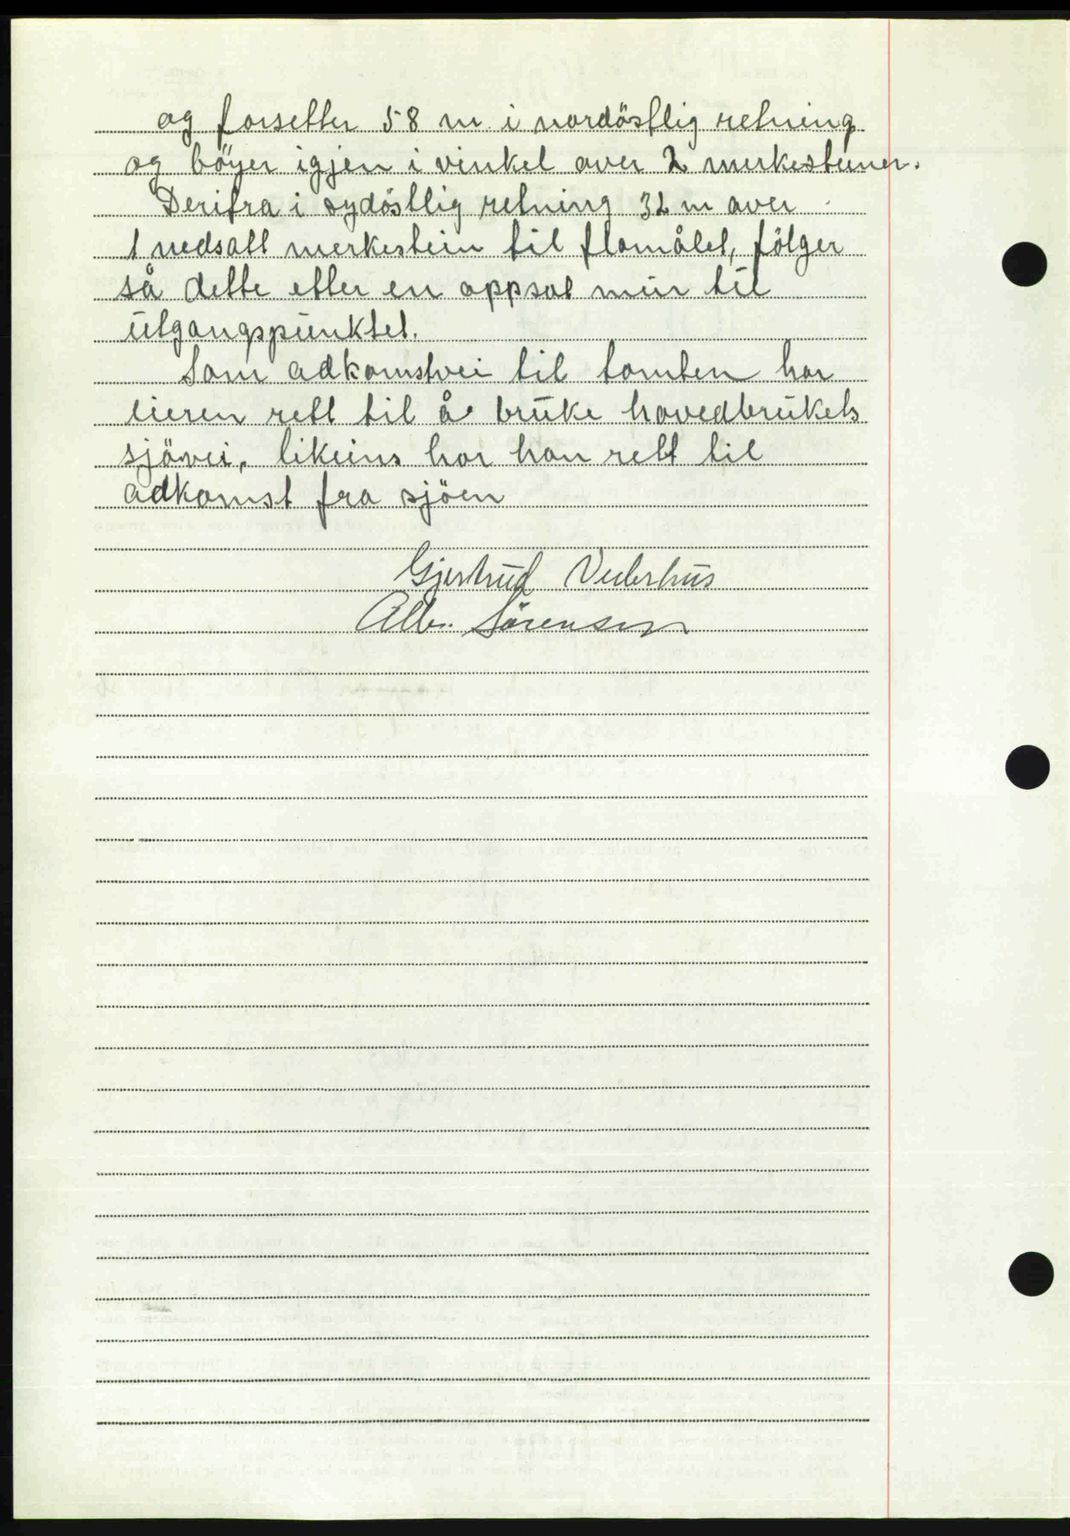 og forsetter 58 m i nordöstlig retning
og böyer igjen i vinkel over 2 merkesteiner.
Derifra i sydöstlig retning 32 m over
1 nedsatt merkestein til flomålet, fölger
så dette etter en oppsat mur til
utgangspunktet.
Som adkomstvei til tomten har
eieren rett til å bruke hovedbrukets
sjövei, likeins har han rett til
adkomst fra sjöen
Gjertrud Vederhus
Alb. Sörensen